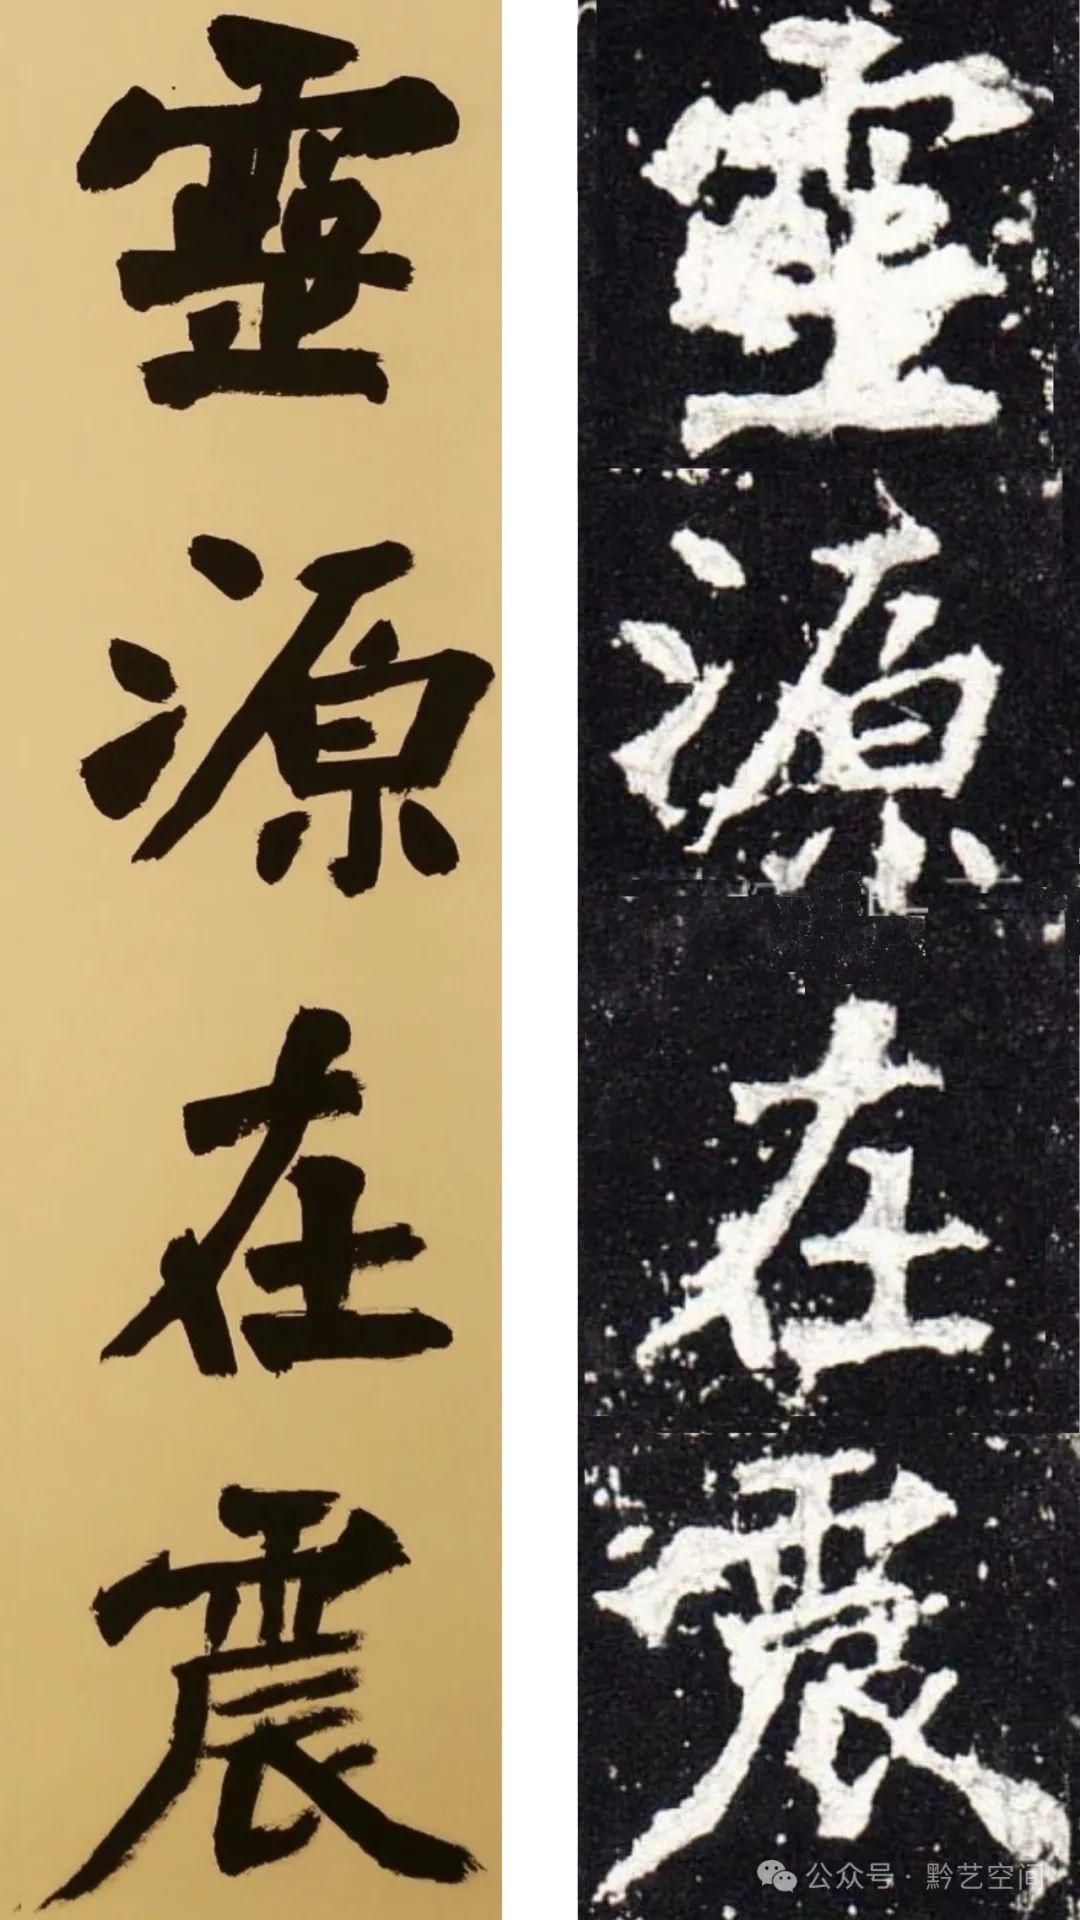 靈源在震
靈源在震
公众号 · 黔艺空间